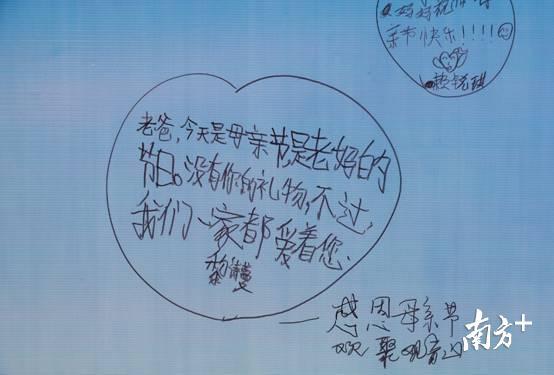 妈妈祝你
亲节快乐!!!!
赖锐琪
老爸,今天是母亲节,是老妈的
节日。没有你的礼物,不过,
我们一家都爱着您.
黎
感恩母亲节
欢聚观音山
南方+